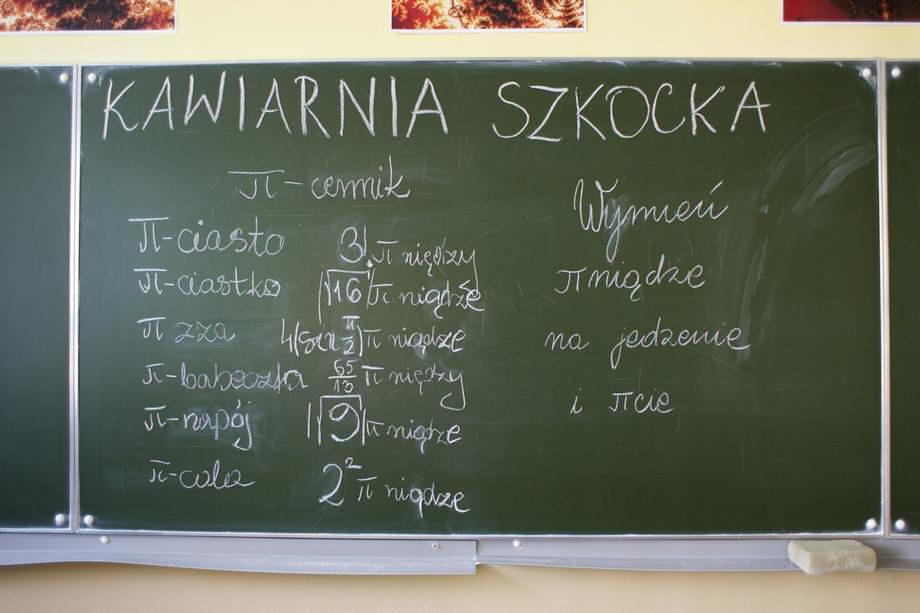 KAWIARNIA SZKOCKA
π-cennik
π-ciasto 3! π niędzy
π-ciastko |√16| π niądze
π zza 4(sin π/2) π niądze
π-babeczka 65/13 π niędzy
π-napój |√9| π niądze
π-cola 2² π niądze
Wymień
πniądze
na jedzenie
i πcie